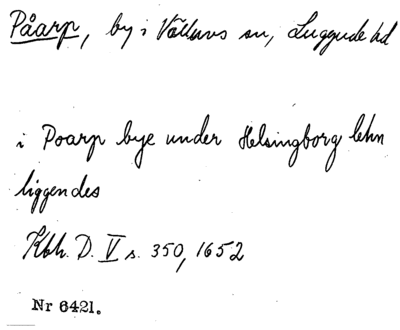 Påarp, by i Välluvs sn, Luggude hd
i Poarp bye under Helsingborg lehn
liggendes
Kbh. D. V s. 350, 1652
Nr 6421.